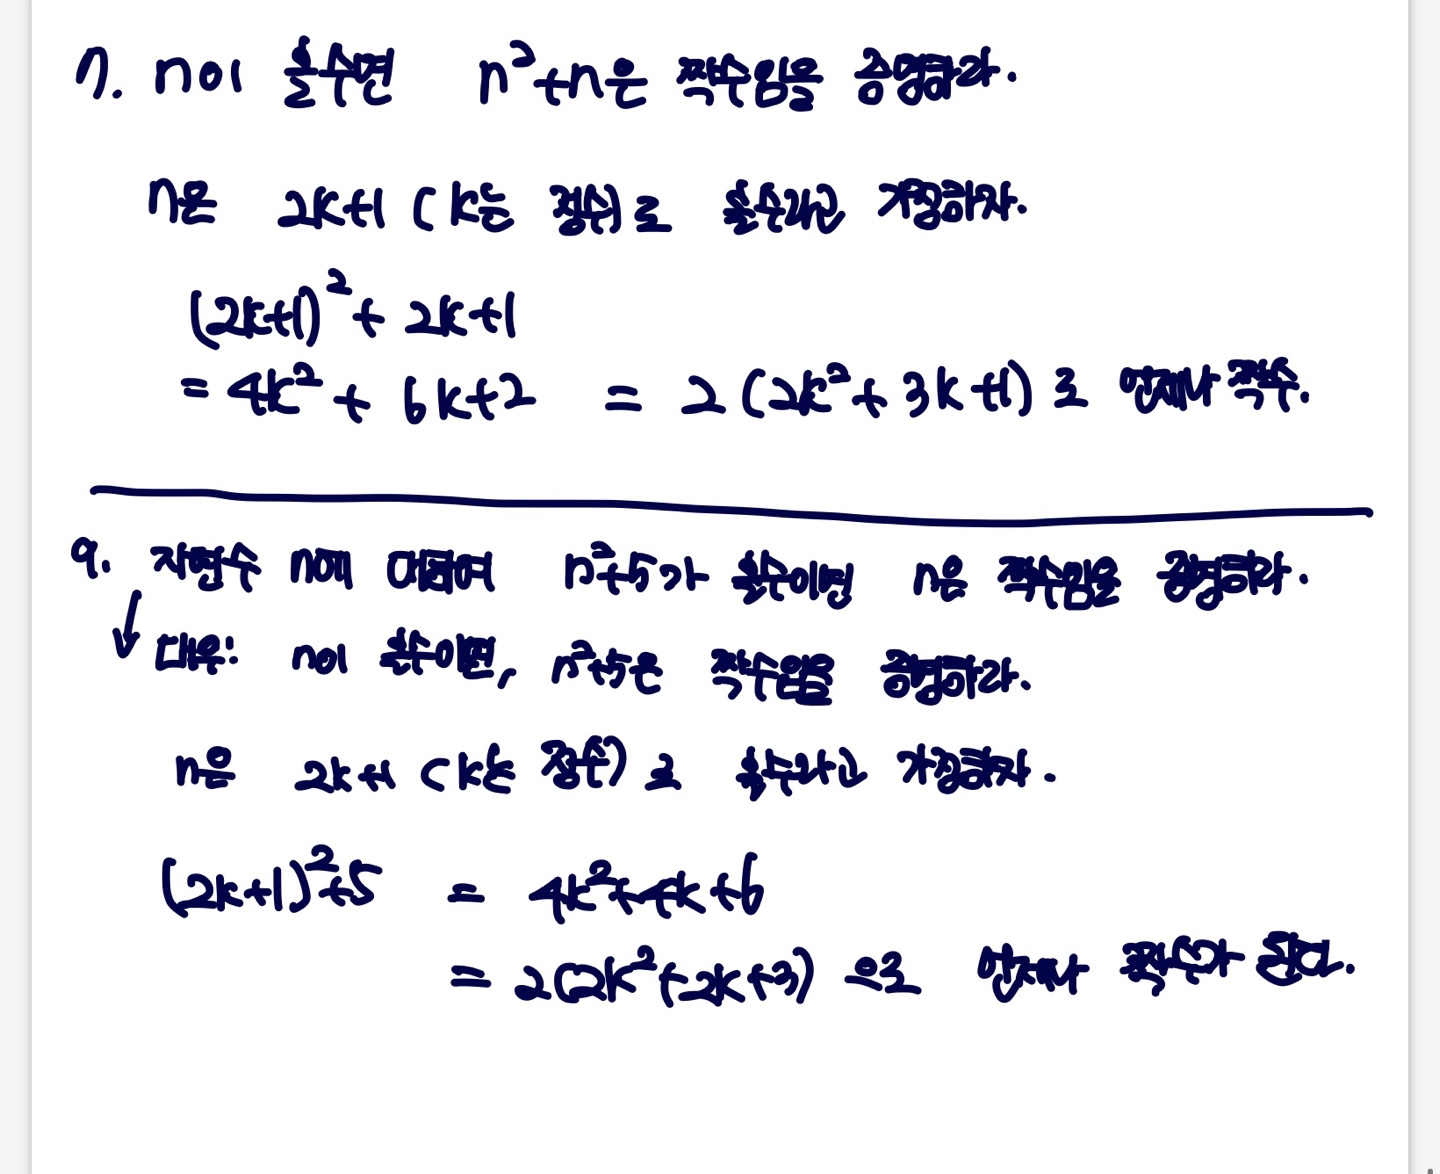 7. n이 홀수면 n²+n은 짝수임을 증명하라.
n은 2k+1 (k는 정수)로 홀수라고 가정하자.
(2k+1)²+ 2k+1
= 4k² + 6k+2 = 2 (2k²+ 3k+1)로 언제나 짝수.
9. 자연수 n에 대하여 n²+5가 홀수이면 n은 짝수임을 증명하라.
↓ 대우: n이 홀수이면, n²+5은 짝수임을 증명하라.
n은 2k+1 (k는 정수)로 홀수라고 가정하자.
(2k+1)²+5 = 4k²+4k+6
= 2(2k²+2k+3) 으로 언제나 짝수가 된다.